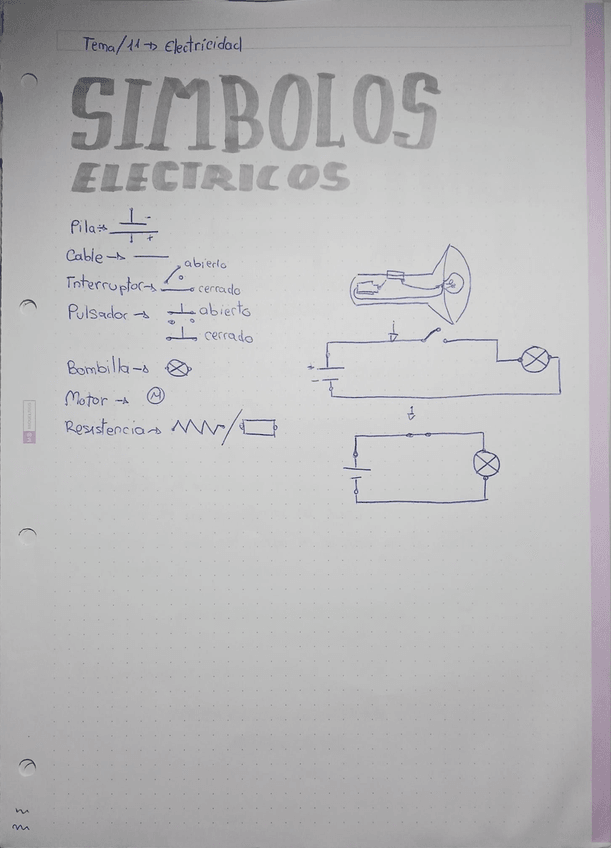 Tema/11→ Electricidad
SIMBOLOS
ELECTRICOS
Pila→ - +
Cable→
abierto
Interruptor→ cerrado
Pulsador → abierto
cerrado
Bombilla→
Motor → M
Resistencia→ /
+
-